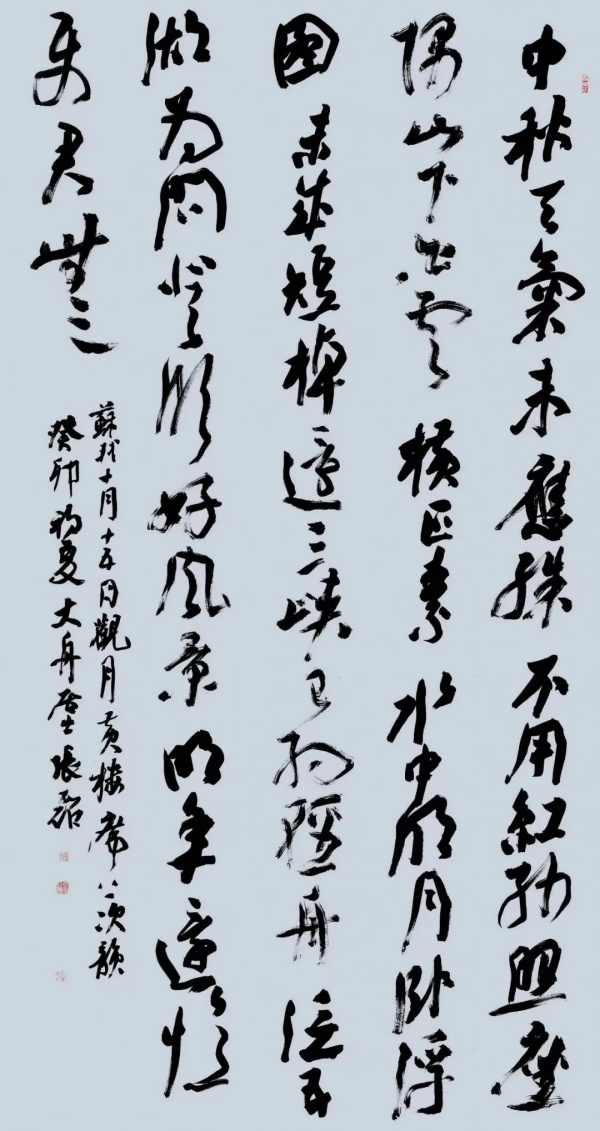 中秋天氣未應殊不用紅紗照座
隅山下白雲橫匹素水中明月卧浮
圖未成短棹還三峽已約輕舟泛五
湖為問登臨好風景明年還憶
使君無
蘇軾十月十五日觀月黃樓席上次韻
癸卯初夏大舟居士張磊